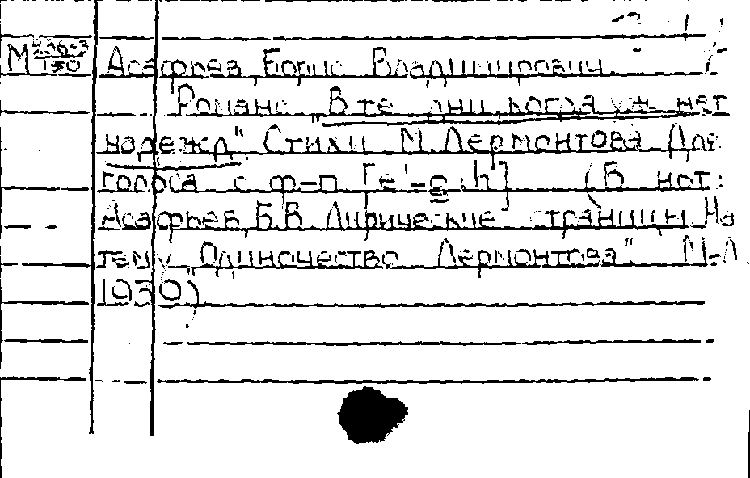 М 206-3/150 Асафьев, Борис Владимирович.
Романс „В те дни, когда уж нет
надежд" Стихи М. Лермонтова Для
голоса с ф-п. [e'-g; h] (В нот:
Асафьев, Б.В. Лирические страницы. На
тему „Одиночество Лермонтова". М.-Л
1939)